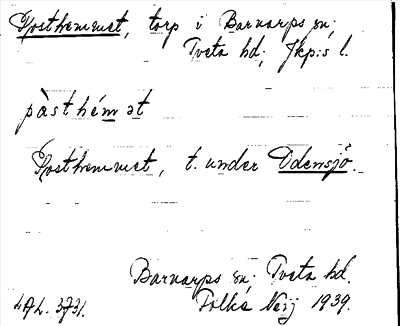 Posthemmet, torp i Barnarps sn;
Tveta hd; Jkp:s l.
påsthémət
Posthemmet, t. under Odensjö.
Barnarps sn; Tveta hd.
LAL. 3731. Folke Neij 1939.